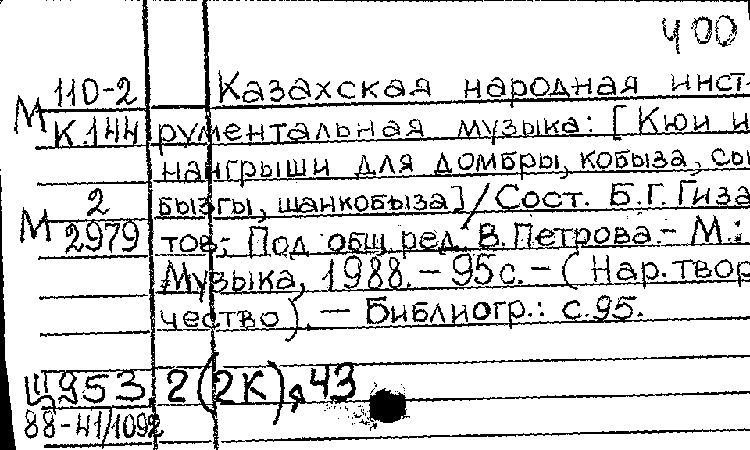 400
М 110-2 Казахская народная инст-
К.144 рументальная музыка: [Кюи и
наигрыши для домбры, кобыза, сы
М 2 бызгы, шанкобыза] / Сост. Б.Г. Гиза
2979 тов; Под общ. ред. В. Петрова. - М.:
Музыка, 1988. - 95 с. - (Нар. твор
чество). - Библиогр.: с. 95.
Щ953.2(2К)я43
88-41/1092